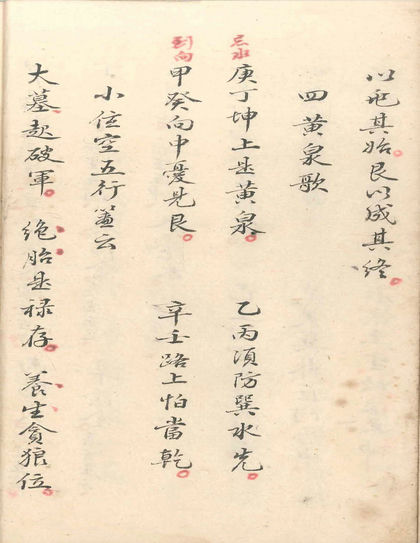 以其始艮以成其終
四黃泉歌
忌水
庚丁坤上是黃泉 乙丙須防巽水先
到向
甲癸向中憂見艮 辛壬路上怕當乾
小位空五行云
大墓起破軍 絶胎是禄存 養生貪狼位